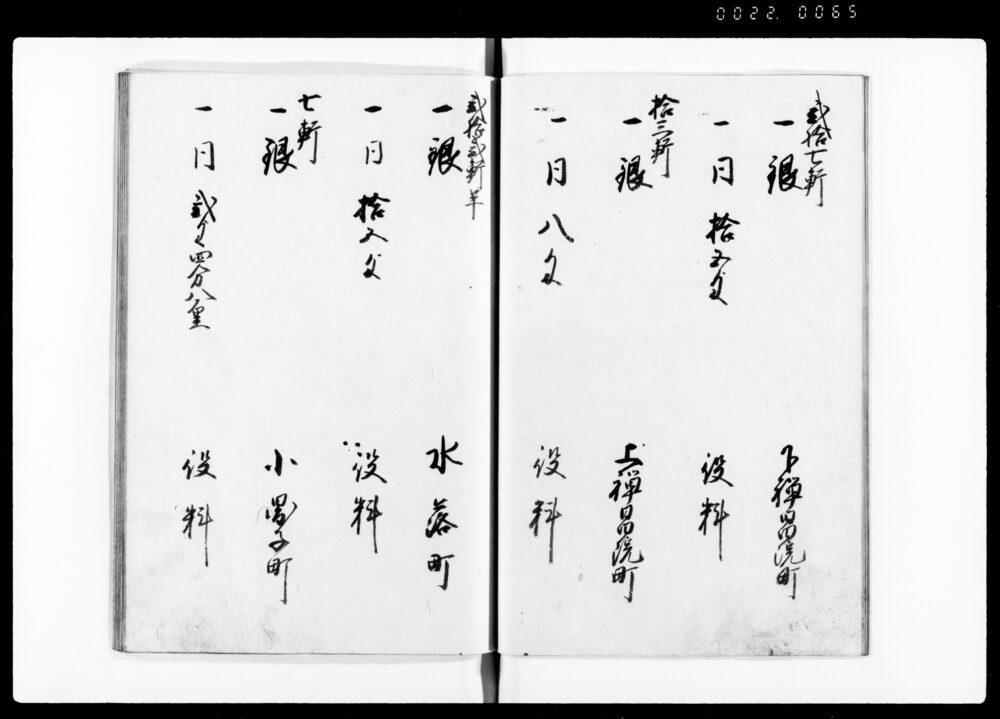 0022.0065
弐拾七軒
一銀 下禅昌院町
一同 拾五匁 役料
拾三軒
一銀 上禅昌院町
一同 八匁 役料
弐拾弐軒半
一銀 水落町
一同 拾五匁 役料
七軒
一銀 小 町
一同 弐匁四分八重 役料